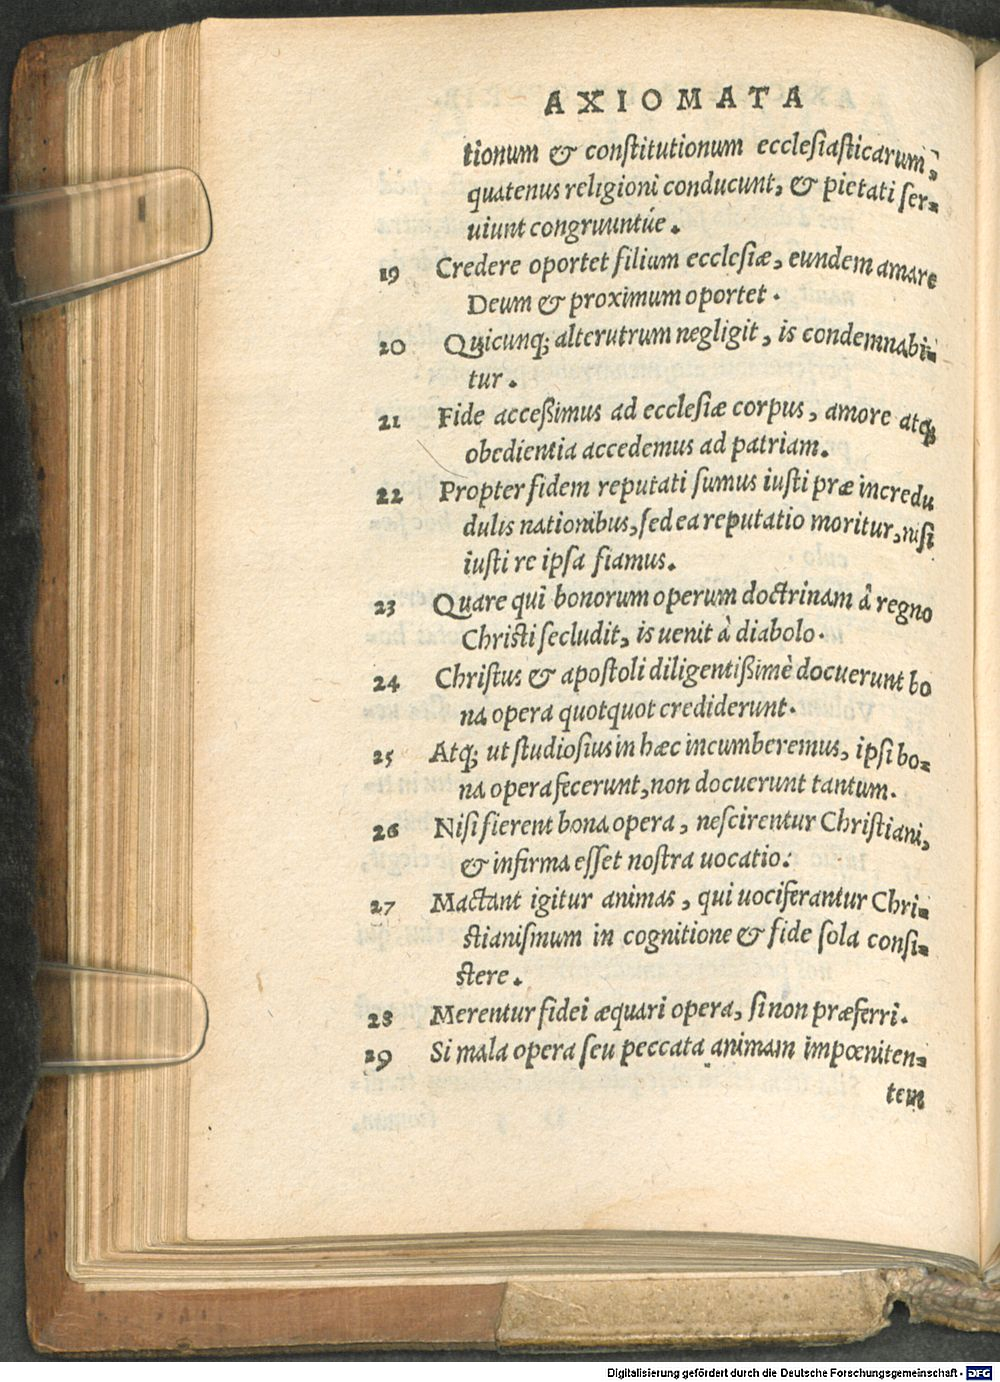 AXIOMATA
tionum & constitutionum ecclesiasticarum,
quatenus religioni conducunt, & pietati ser=
uiunt congruuntúe.
19 Credere oportet filium ecclesiæ, eundem amare
Deum & proximum oportet.
20 Quicunq; alterutrum negligit, is condemnabi=
tur.
21 Fide acceßimus ad ecclesiæ corpus, amore atq;
obedientia accedemus ad patriam.
22 Propter fidem reputati sumus iusti præ incredu
dulis nationibus, sed ea reputatio moritur, nisi
iusti re ipsa fiamus.
23 Quare qui bonorum operum doctrinam à regno
Christi secludit, is uenit à diabolo.
24 Christus & apostoli diligentißimè docuerunt bo
na opera quotquot crediderunt.
25 Atq; ut studiosius in hæc incumberemus, ipsi bo=
na opera fecerunt, non docuerunt tantum.
26 Nisi fierent bona opera, nescirentur Christiani,
& infirma esset nostra uocatio:
27 Mactant igitur animas, qui uociferantur Chri=
stianismum in cognitione & fide sola consi=
stere.
28 Merentur fidei æquari opera, si non præferri.
29 Si mala opera seu peccata animam impœniten=
tem
Digitalisierung gefördert durch die Deutsche Forschungsgemeinschaft - DFG